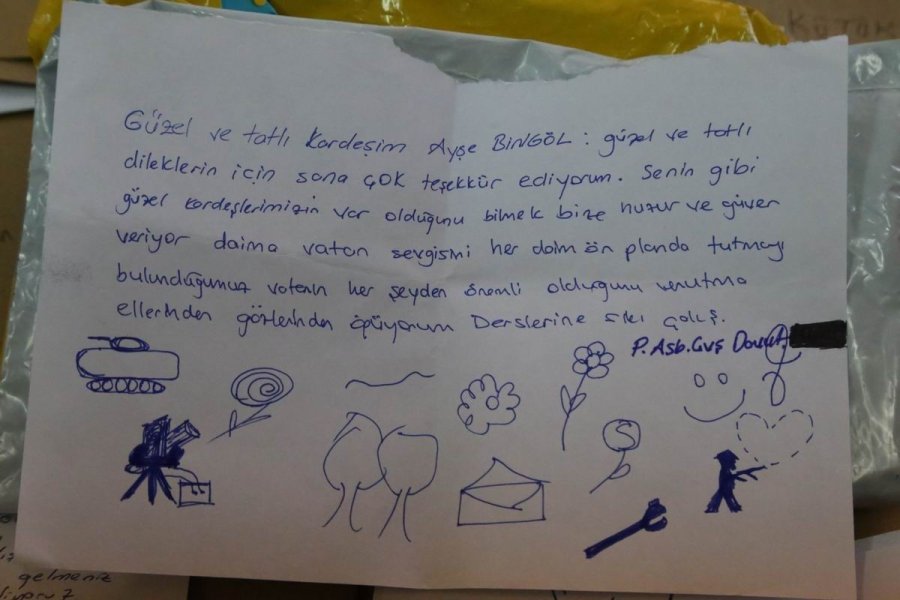 KÜTAH
Güzel ve tatlı kardeşim Ayşe BİNGÖL : güzel ve tatlı
dileklerin için sana çok teşekkür ediyorum. Senin gibi
güzel kardeşlerimizin var olduğunu bilmek bize huzur ve güven
veriyor daima vatan sevgisini her daim ön planda tutmayı
bulunduğumuz vatanın her şeyden önemli olduğunu unutma
ellerinden gözlerinden öpüyorum Derslerine sıkı çalış.
P. Asb. Çvş Davut
gelmeniz